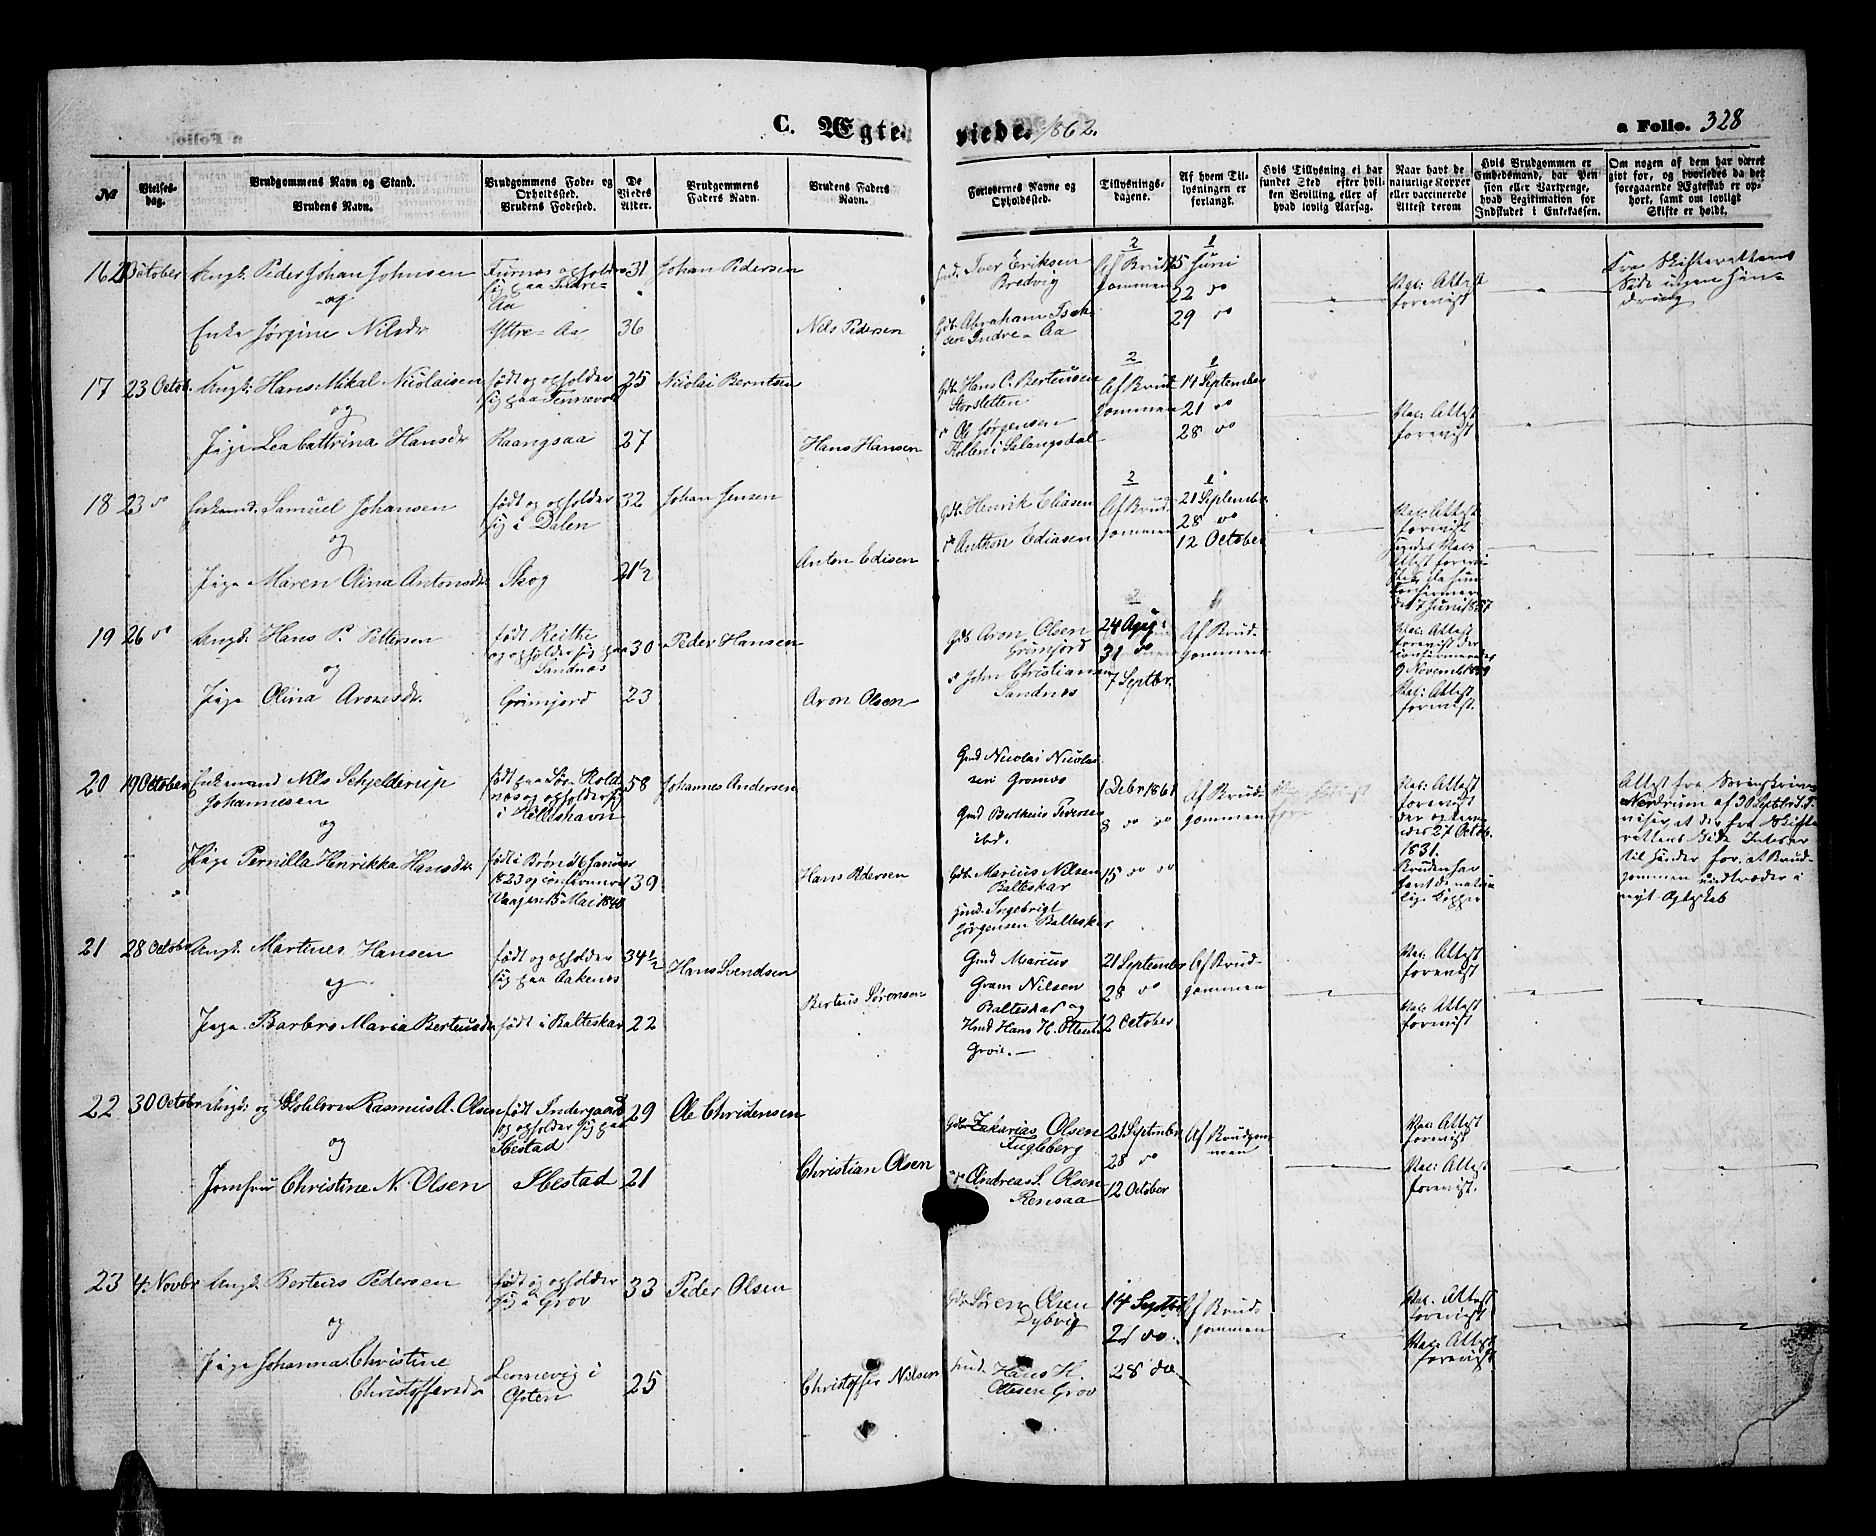 C. Ægteviede. 1862.
a Folio. 328
No
Vielses-
dag.
Brudgommens Navn og Stand.
Brudens Navn.
Brudgommens Føde- og
Opholdssted.
Brudens Fødested.
De
Viedes
Alder.
Brudgommens
Faders Navn.
Brudens Faders
Navn.
Forlovernes Navne og
Opholdssted.
Tillysnings-
dagene.
Af hvem Til-
lysningen er
forlangt.
Hvis Tillysning ei har
fundet Sted efter hvil-
ken Bevilling eller af
hvad lovlig Aarsag.
Naar havt de
naturlige Kopper
eller vaccinerede
Attest derom
Hvis Brudgommen er
Embedsmand, har Pen-
sion eller Vartpenge,
hvad Legitimation for
Indskudet i Enkekassen.
Om nogen af dem har været
gift før, og hvorledes da det
foregaaende Ægteskab er op-
hørt, samt om lovligt
Skifte er holdt.
16 2 October Ungk. Peder Johan Johnsen
og
Enke Jørgine Nilsdr
Furnæs opholder
sig paa Indre-
Aa
Yttre-Aa
31
36
Johan Pedersen
Nels Pedersen
Iver Eriksen
Bredvig
Gdb. Abraham Isak-
sen Indre-Aa
2
Af Brud-
gommen
1
15 Juni
22 do
29 do
Vac: Attest
forevist
Fra Skifterettens
Side ingen Hin-
dring
17 23 Octob. Ungk. Hans Mikal Nicolaisen
og
Pige Leabattrina Hansdr
født og opholder
sig paa Tennevol
Raangsaa
25
27
Nicolai Berntsen
Hans Hansen
Gdb. Hans C. Berteusen
Storsletten
do Ole Jørgensen
Kollen i Salangsdal
2
Af Brud-
gommen
1
14 September
21 do
28 do
Vac: Attest
forevist
18 23 do Enkemd. Samuel Johansen
og
Pige Maren Olina Antonsdr
født og opholder
sig i Dalen
Skog
32
21½
Johan Jensen
Anton Edisen
Gdb. Henrik Eliasen
do Anthon Ediasen
2
Af Brud-
gommen
1
21 September
28 do
12 October
Vac: Attest
forevist
19 26 do Ungk. Hans P. Pettersen
og
Pige Olina Aronsdr.
født Reithe
og opholder sig paa
Sandnæs
Grimjord
30
23
Peder Hansen
Aron Olsen
Gdb. Aron Olsen
Grimjord
do John Christiansen
Sandnes
2
24 Aug:
31 do
7 Septbr.
1
Af Brud-
gommen
Vac: Attest
forevist der
confirmeredes
Vac: Attest
forevist.
20 19 October Enkemand Nils Schjelderup
Johannesen
og
Pige Pernilla Henrikka Hansdr.
født paa Sør Rold-
næs og opholder sig
i Hilleshavn
født i Brøn d 6 Januar
1823 og confirmeret
Vaagen 15 Mai 1840
58
39
Johannes Andersen
Hans Pedersen
Gmd Nicolai Nicolai-
sen Gromvo
Gmd Bertheus Pedersen
ibd.
Gdb. Marcus Nilsen
Balteskar
Hmd. Ingebrigt
Jørgensen Balteskar
1 Debr 1861
8 do do
15 do do
Af Brud-
gommen
Vac: Attest
forevist
27 Octob.
1831.
Bruden har
havt de natur-
lige Kopper
Attest fra Sorenskriver
Nordrum af 30 Septbr
viser at der fra Skifte-
rettens Side Intet er
til Hinder for, at Brud-
gommen indtræder i
nyt Ægteskab
21 28 Octobr Ungk. Martines Hansen
og
Pige Barbro Maria Berteusdr
født og opholder
sig paa Aakenes
født i Balteskar
34½
22
Hans Svendsen
Berteus Sørensen
Gmd Marcus
Gram Nilsen
Balteskar og
Hmd Hans H. Ottesen
Grov.
21 September
28 do
12 October
Af Brud-
gommen
Vac: Attest
forevist
Vac: Attest
forevist
22 30 Octobr Ungk. og Rasmus A. Olsen
og
Jomfru Christine N. Olsen
født Indergaard
og opholder sig paa
Ibestad
Ibestad
29
21
Ole Christensen
Christian Olsen
Gdb Zakarias Olsen
Fugleberg
do Andreas S. Olsen
Rensaa
21 September
28 do
12 October
Af Brudgom-
men
Vac: Attest
forevist
Vac: Attest
forevist.
23 4 Novbr Ungk. Berteus Pedersen
og
Pige Johanna Christine
Christoffersdr
født og opholder
sig i Grov
Lennevig i
Ofoten
33
25
Peder Olsen
Christoffer Nilsen
Gdb Søren Olsen
Dybvig
Hmd. Hans H.
Ottesen Grov
14 Septbr
21 do
28 do
Af Brud-
gommen
Vac. Attest
forevist
Vac. Attest
forevist